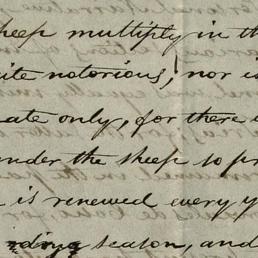 sheep multiply in th
ite notorious; nor is
ate only, for there
under the sheep to pr
is renewed every y
season, and